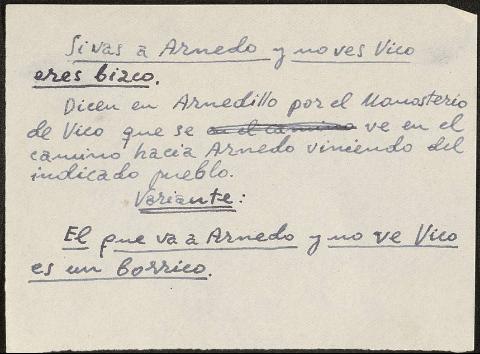 Si vas a Arnedo y no ves Vico
eres bizco.
Dicen en Arnedillo por el Monasterio
de Vico que se en el camino ve en el
camino hacia Arnedo viniendo del
indicado pueblo.
Variante:
El que va a Arnedo y no ve Vico
es un borrico.